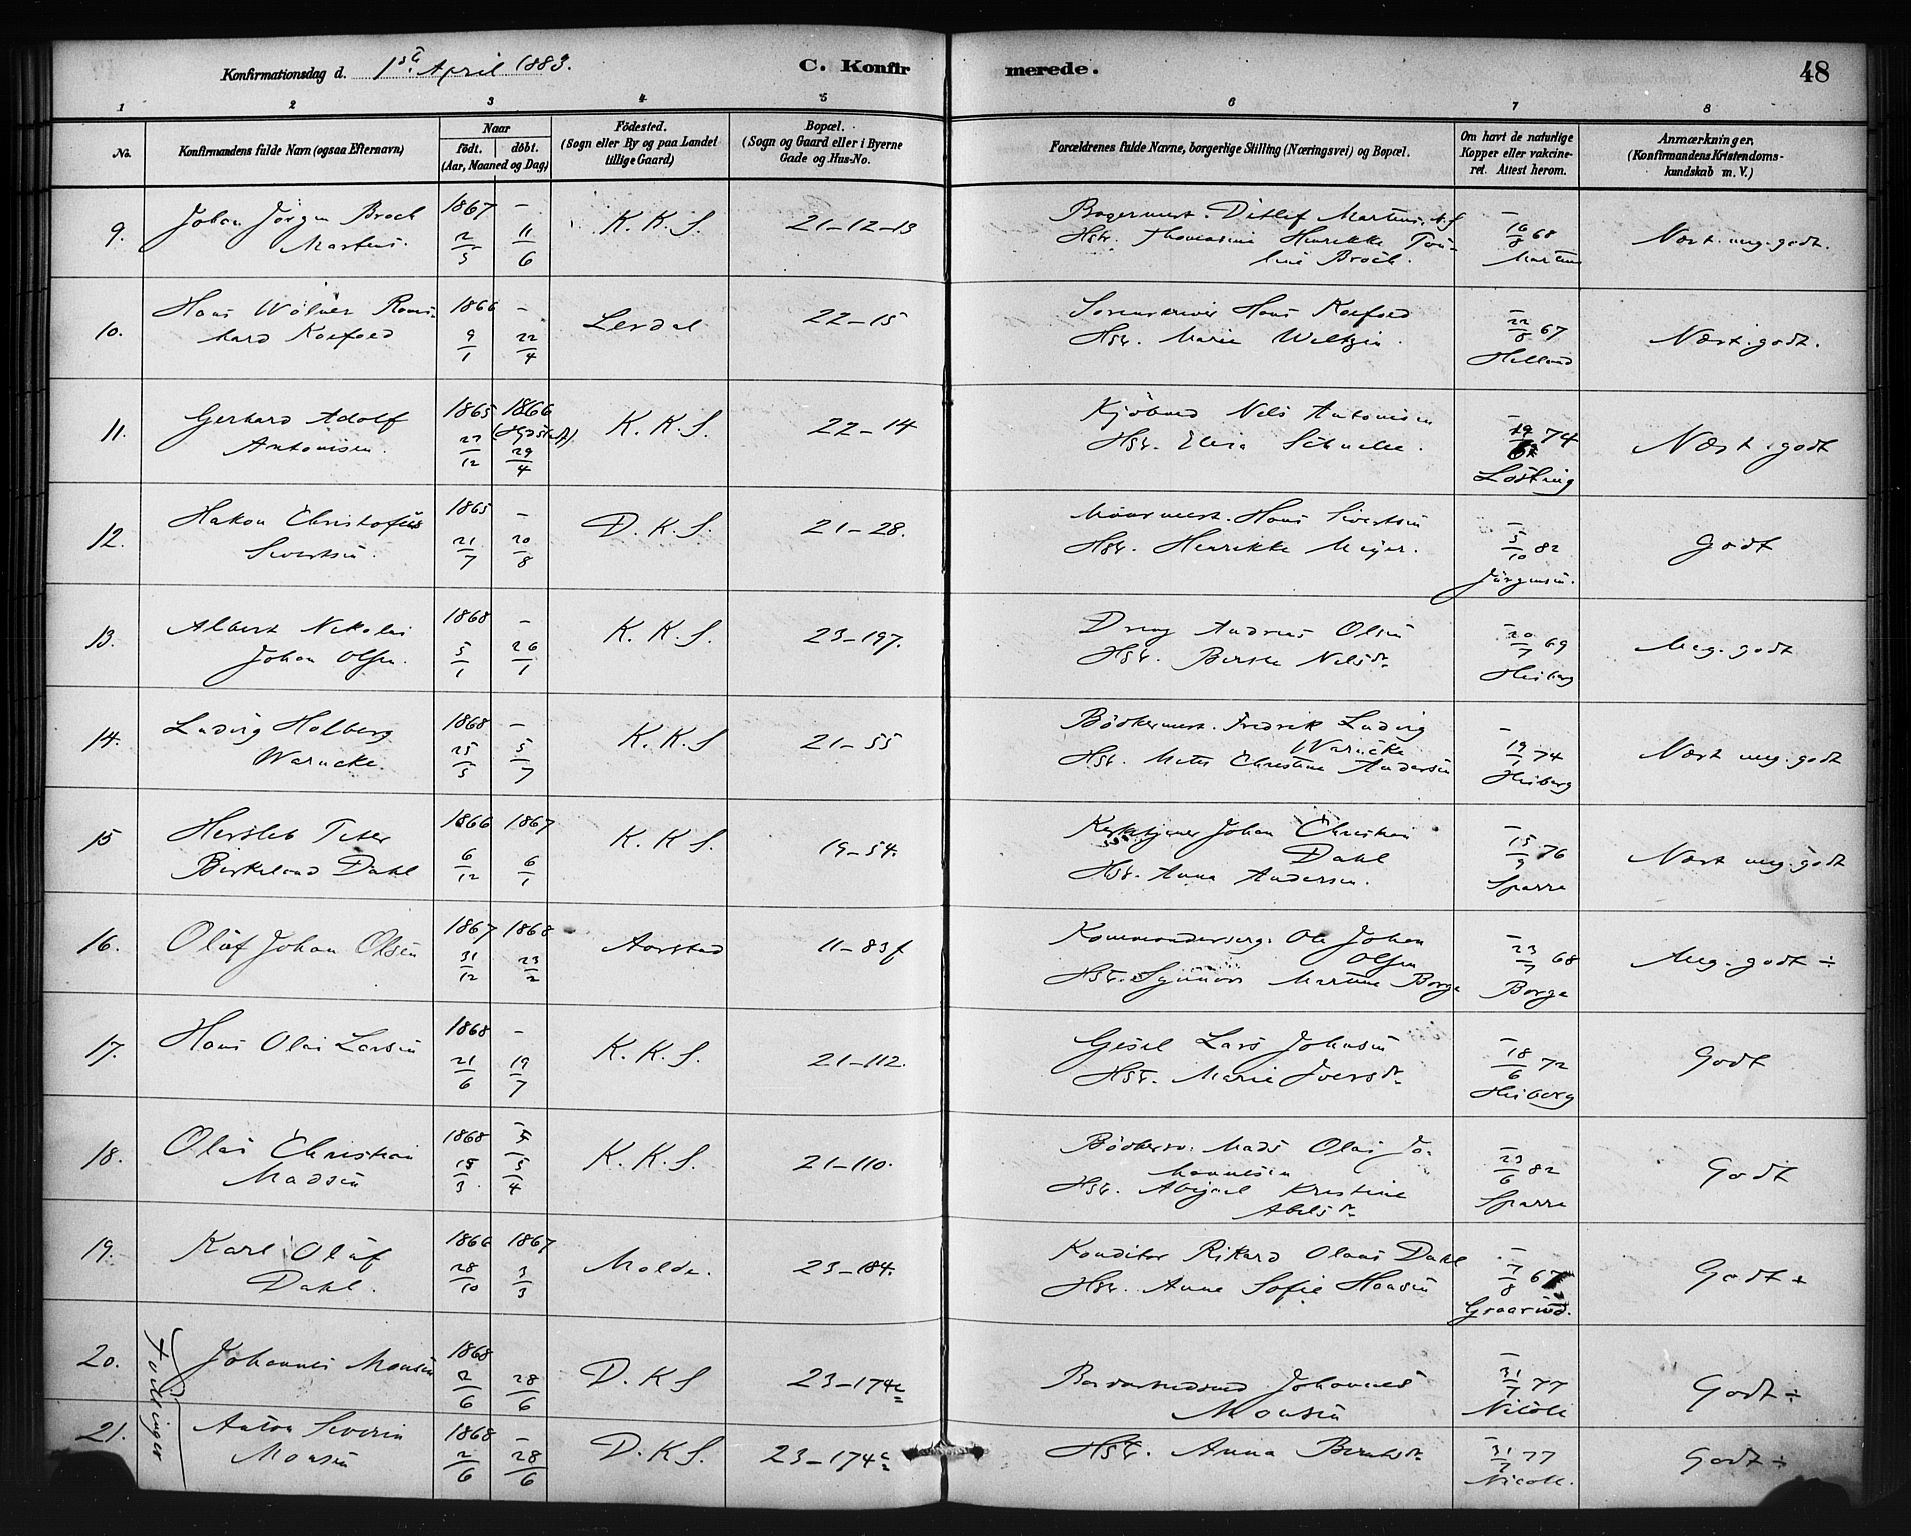 Konfirmationsdag d. 1ste April 1883.
C. Konfirmerede.
48
1 2 3 4 5 6 7 8
No.
Konfirmandens fulde Navn (ogsaa Efternavn)
Naar
födt. döbt.
(Aar, Maaned og Dag)
Födested.
(Sogn eller By og paa Landet
tillige Gaard)
Bopæl.
(Sogn og Gaard eller i Byerne
Gade og Hus-No.
Forældrenes fulde Navne, borgerlige Stilling (Næringsvei) og Bopæl.
Om havt de naturlige
Kopper eller vakcine-
ret. Attest herom.
Anmærkninger.
(Konfirmandens Kristendoms-
kundskab m. V.)
9. Johan Jörgen Broch
Martens.
1867 2/5 – 11/6
K. K. S.
21–12–13
Bagermest. Ditlef Martens
Hstr. Thomasine Henrikke
Broch.
– 16/8 68
Martens
Næst. meg. godt.
10.
Koefoed
1866 9/1 – 22/4
Lerdal
22–15
Sorenskriver Hans Koefoed
Hstr. Marie Weltzin.
– 22/8 67
Helland
Næst. godt.
11. Gerhard Adolf
Antonisen.
1865 27/12 1866 29/4
K. K. S.
22–14
Kjöbmd Nels Antonisen
Hstr. Elisa
– 19 74
Lösting
Næst. godt
12. Hakon Christofius
Sivertsen.
1865 21/7 – 20/8
D. K. S.
21–28.
Muurmest. Hans Sivertsen
Hstr. Henrikke Meyer.
– 5/10 82
Jörgensen.
Godt
13. Albert Nikolai
Johan Olsen.
1868 5/1 – 26/1
K. K. S.
23–197.
Dreng Andreas Olsen
Hstr. Nelsdr
– 20/7 69
Heiberg
Meg. godt
14. Ludvig Holberg
Warncke.
1868 25/5 – 5/7
K. K. S
21–55
Bödkermest. Fredrik Ludvig
Warncke
Hstr. Mette Christine Andersen
– 19/1 74
Heiberg
Næst meg. godt
15 Hersleb Peter
Birkeland Dahl
1866 6/12 1867 6/1
K. K S.
19–54.
Johan Christian
Dahl
Hstr. Anna Andersen.
– 15/9 76
Sparre
Næst meg. godt
16. Olaf Johan Olsen
1867 31/12 1868 23/2
Aarstad
11–83f
Kommanderserg. Ole Johan
Olsen
Hstr. Synnöve Martine Borge
– 23/7 68
Borge
Meg. godt ÷
17. Hans Olai Larsen
1868 21/6 – 19/7
K. K. S.
21–112.
Gesel Lars Johnsen
Hstr. Marie Iversdr
– 18/6 72
Heiberg
Godt
18. Olai Christian
Madsen
1868 15/3 – 5/4
K. K. S.
21–110.
Bödkersv. Mads Olai Jo-
hannesen
Hstr. Abigael Kristine
Abelsdr
– 23/6 82
Sparre
Godt
19. Karl Olaf
Dahl.
1866 28/10 1867 3/3
Molde.
23–184.
Konditor Rikard Olaus Dahl
Hstr. Anne Sofie Hansen
– 7/8 67
Godt ÷
Tvillinger
20. Johannes Monsen
1868 2/6 28/6
D. K S
23–174c
Johannes
Monsen
– 31/7 77
Nicole
Godt ÷
21. Anton Severin
Monsen
1868 2/6 – 28/6
D. K S.
23–174c
Hstr. Anna
– 31/7 77
Nicole.
Godt ÷